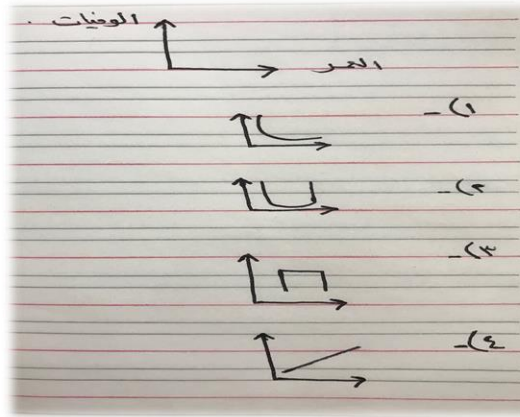 الوفيات .
العمر
١)-
٢)-
٣)-
٤)-